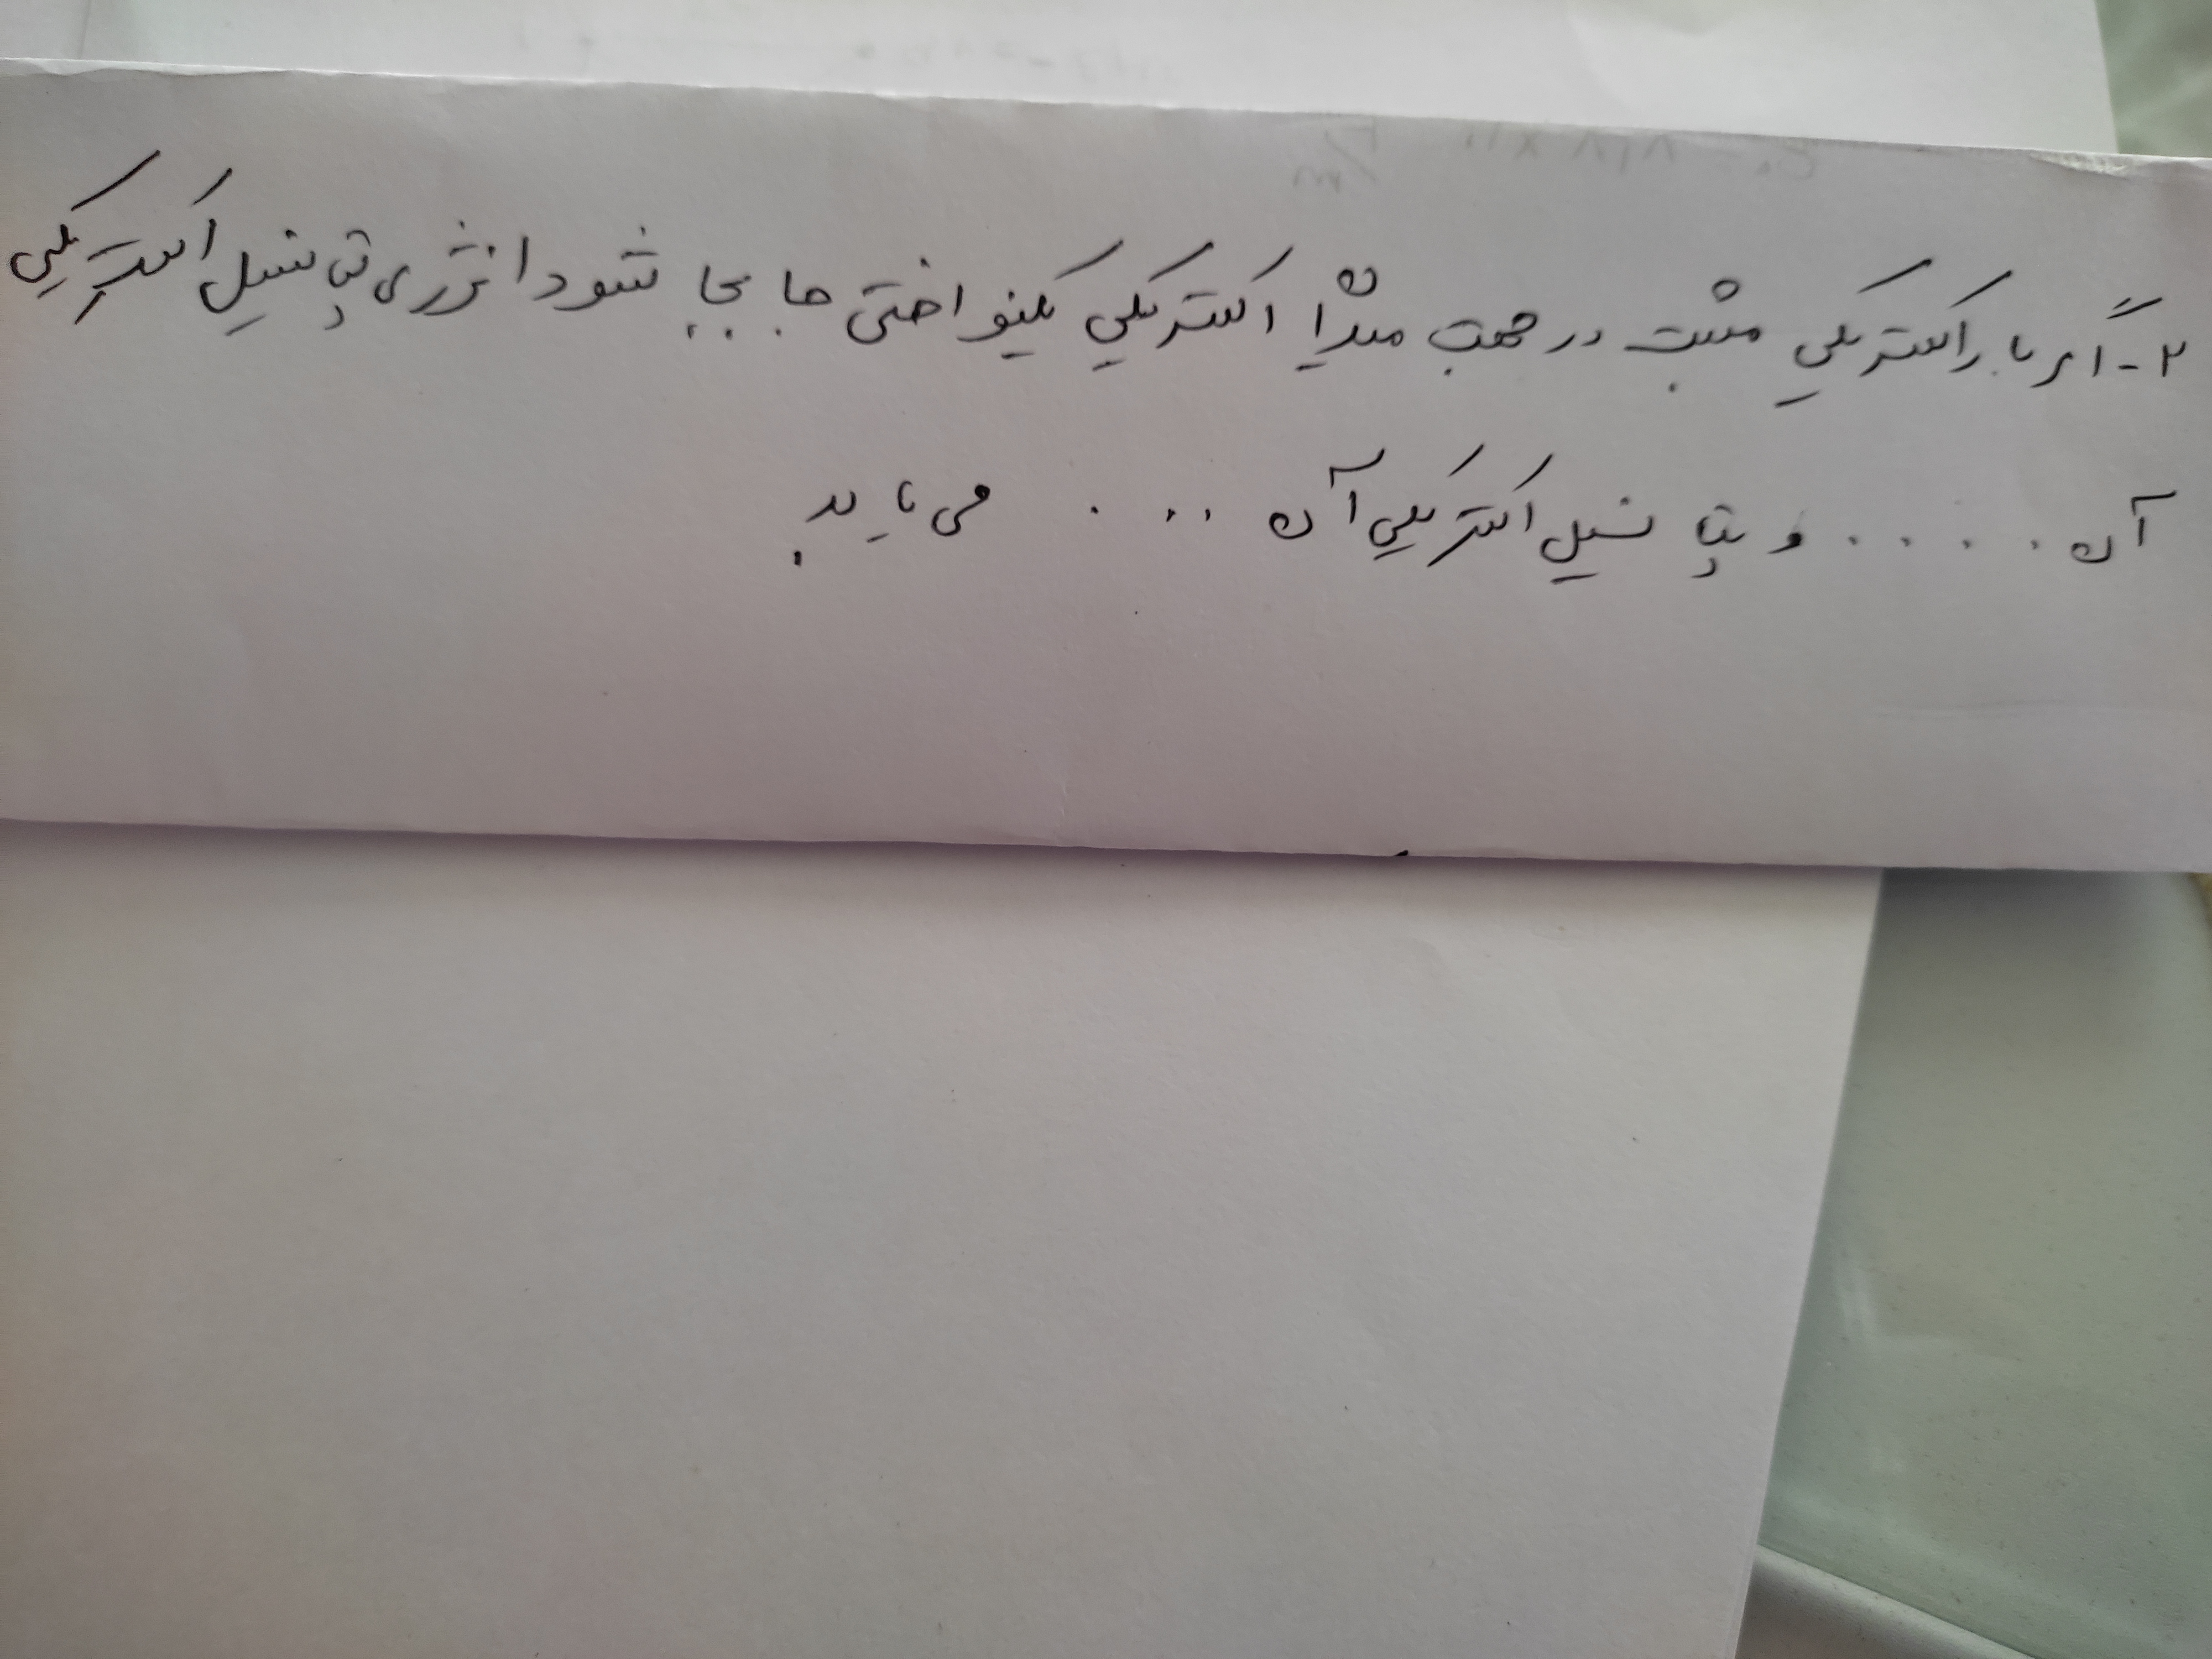 ۲- اگر بار الکتریکی مثبت در جهت میدان الکتریکی یکنواختی جا بجا شود انرژی پتانسیل الکتریکی
آن . . . . و پتانسیل الکتریکی آن . . . . می یابد.